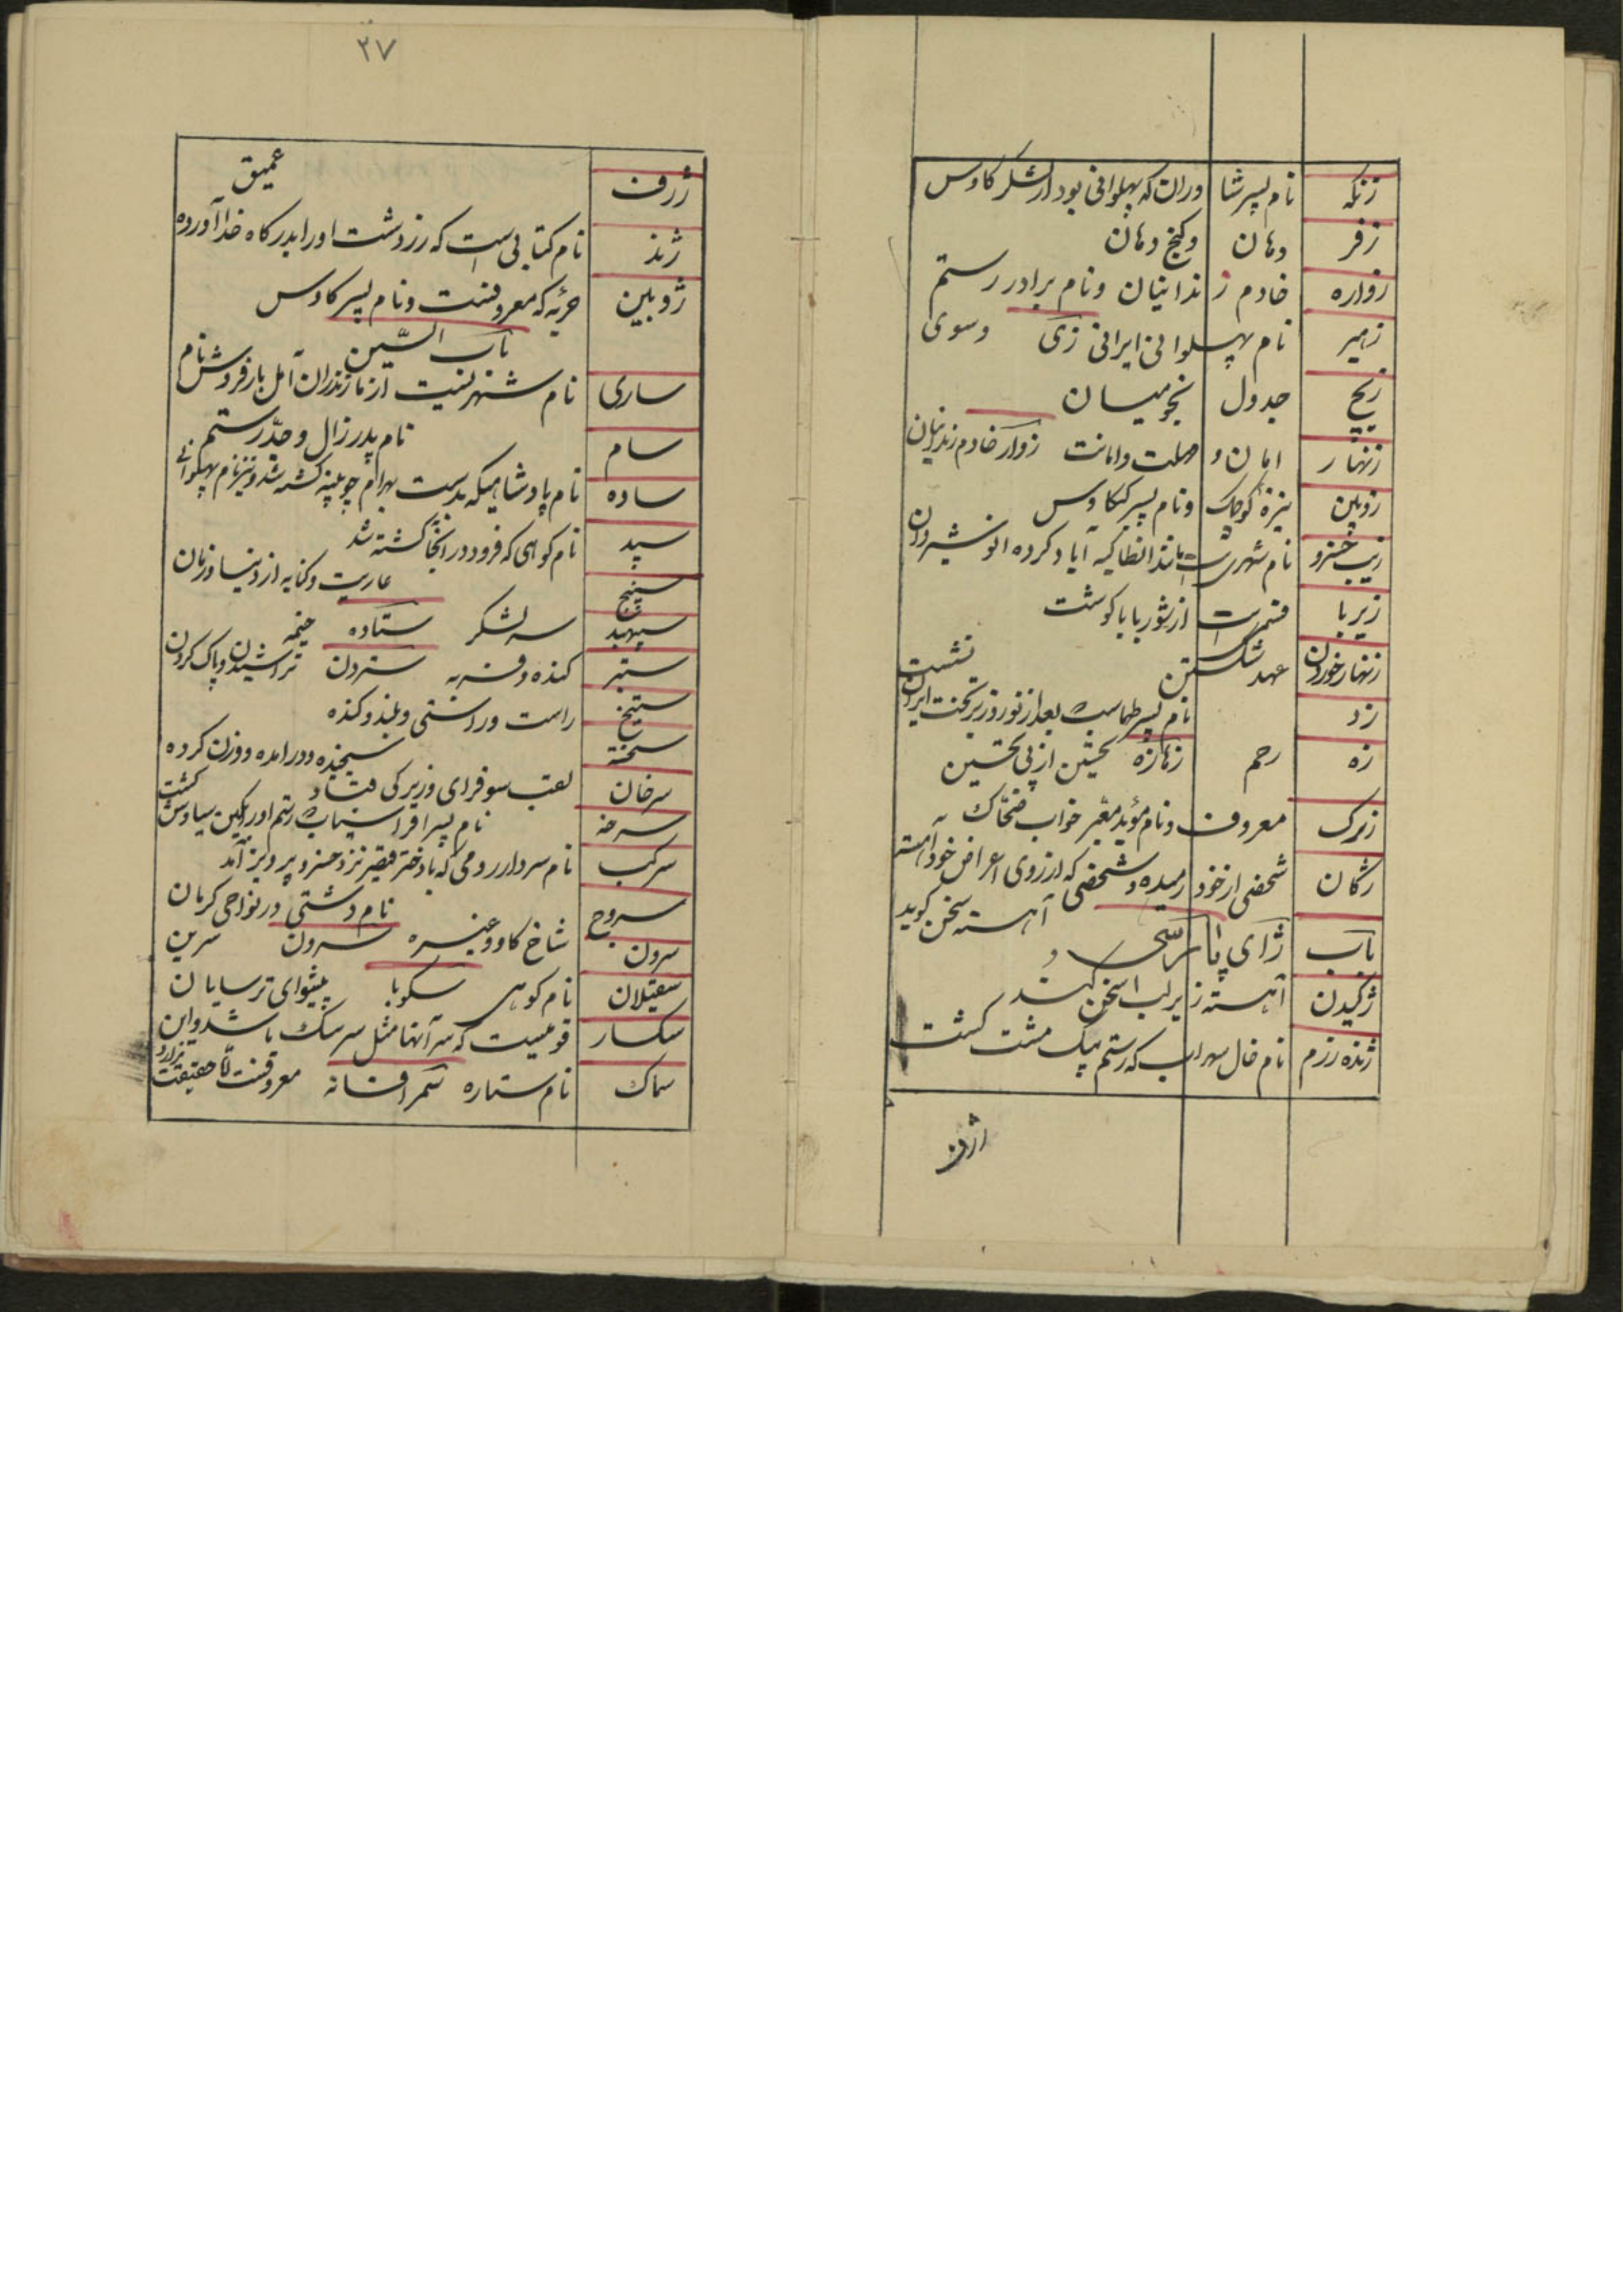 زنکه نام پسر شاوران که پهلوانی بود از لشکر کاوس
زفر دهان وکنج دهان
زواره خادم زندانیان ونام برادر رستم
زهیر نام پهلوانی ایرانی زی وسوی
زیج جدول نجومیان
زنهار امان و مهلت وامانت زوار خادم زندانیان
زوپین نیزهٔ کوچک ونام پسر کیکاوس
زیب خسرو نام شهری مانند انطاکیه آباد کرده انوشیروان
زیربا قسمی است از شوربا باکوشت
زنهار خوردن عهد شکستن
زد نام پسر طهماسب بعد از نوذر بر تخت ایران نشست
زه رحم زهازه تحسین از پی تحسین
زیرک معروف ونام مؤبد معبر خواب ضحاک
زکان شخصی از خود رمیده وشخصی که از روی اعراض خود آهسته
آهسته سخن کوید
باب ژای پارسی
ژکیدن آهسته زیر لب سخن کند
ژنده رزم نام خال سهراب که رستم بیک مشت کشت
ژرف
۲۷
ژرف عمیق
ژند نام کتابی است که زردشت اورا بدرکاه خدا آورده
ژوبین حربه که معروفست ونام پسر کاوس
باب السّین
ساری نام شهریست از مازندران آمل بارفروش نام
سام نام پدر زال وجدّ رستم
ساده نام پادشاهیکه بدست بهرام چوبینه کشته شد ونیز نام پهلوانی
سپد نام کوهی که فرود در آنجا کشته شد
سپنج عاریت وکنایه از دنیا وزمان
سپهبد سر لشکر ستاده خیمه
ستبر کنده وفربه ستردن تراشیدن وپاک کردن
ستیخ راست وراستی وبلند وکنده
سخته سنجیده ودرآمده ووزن کرده
سرخان لقب سوفرای وزیر کی قباد
سرخه نام پسر افراسیاب رستم اورا بکین سیاوش کشت
سرکب نام سردار رومی که با دختر قیصر نزد خسرو پرویز آمد
سروج نام دشتی در نواحی کرمان
سرون شاخ کاو وغیره سرون سرین
سقیلان نام کوهی سکوبا پیشوای ترسایان
سکسار قومیست که سر آنها مثل سر سک باشد واین
سماک نام ستاره سمر افسانه معروفست امّا حقیقت ندارد